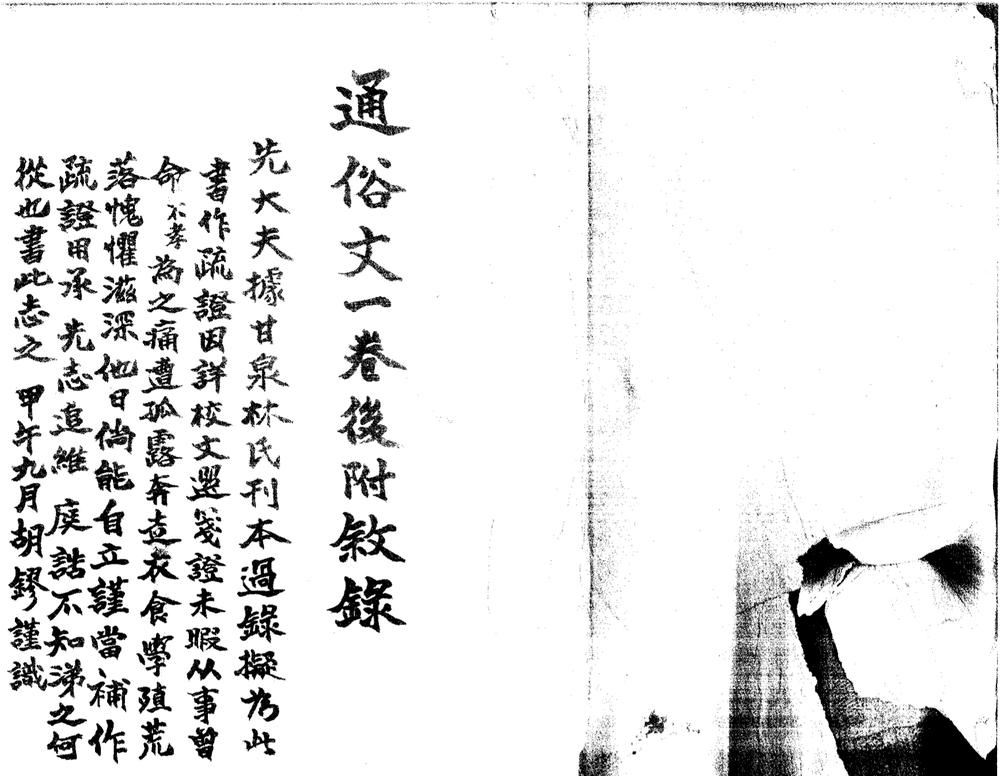 通俗文一卷後附敘錄
先大夫據甘泉林氏刊本過錄擬為此
書作疏證因詳校文選箋證未暇从事曾
命不孝為之痛遭孤露奔走衣食學殖荒
落愧懼滋深他日倘能自立謹當補作
疏證用承先志追維庭誥不知涕之何
從也書此志之甲午九月胡鏐謹識